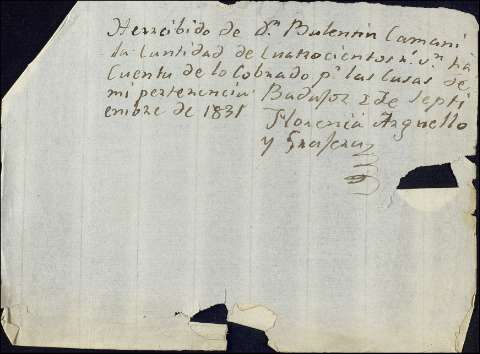 He rrecibido de Dn. Balentin Camani
la Cantidad de Cuatrocientos rs. vn. ha
Cuenta de lo Cobrado pr. las Casas de
mi pertenencia Badajoz 2 de Septi
embre de 1831
Florencia Arguello
y